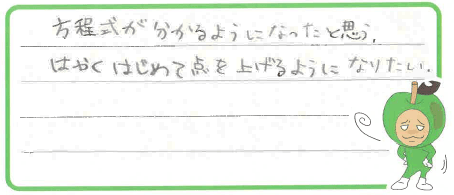 方程式が分かるようになったと思う。
はやくはじめて点を上げるようになりたい。